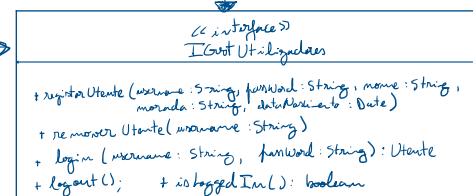 <<interface>>
IGestUtilizadores
+ registarUtente(username: String, password: String, nome: String,
morada: String, dataNascimento: Date)
+ remover Utente(username: String)
+ login (username: String, password: String): Utente
+ logout(); + isLoggedIn(): boolean